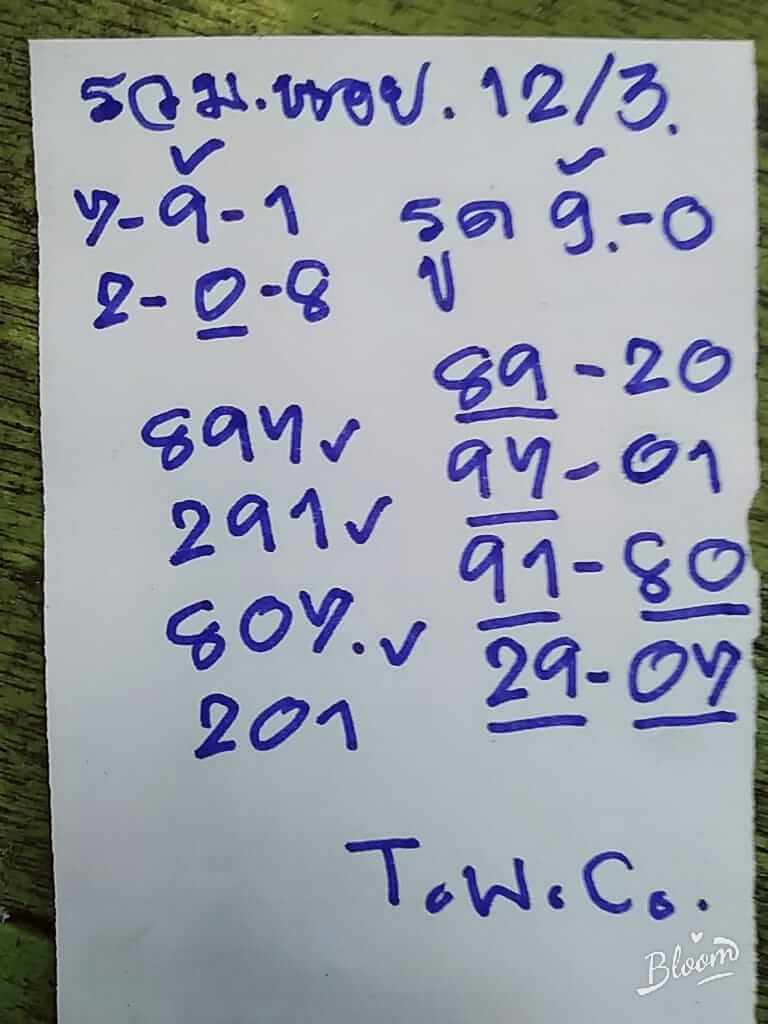 รวม.หนอย. 12/3.
7-9-1
2-0-8
897✓
291✓
807.✓
201
รูด 9.-0
89-20
97-01
91-80
29-07
T.W.C.
Bloom